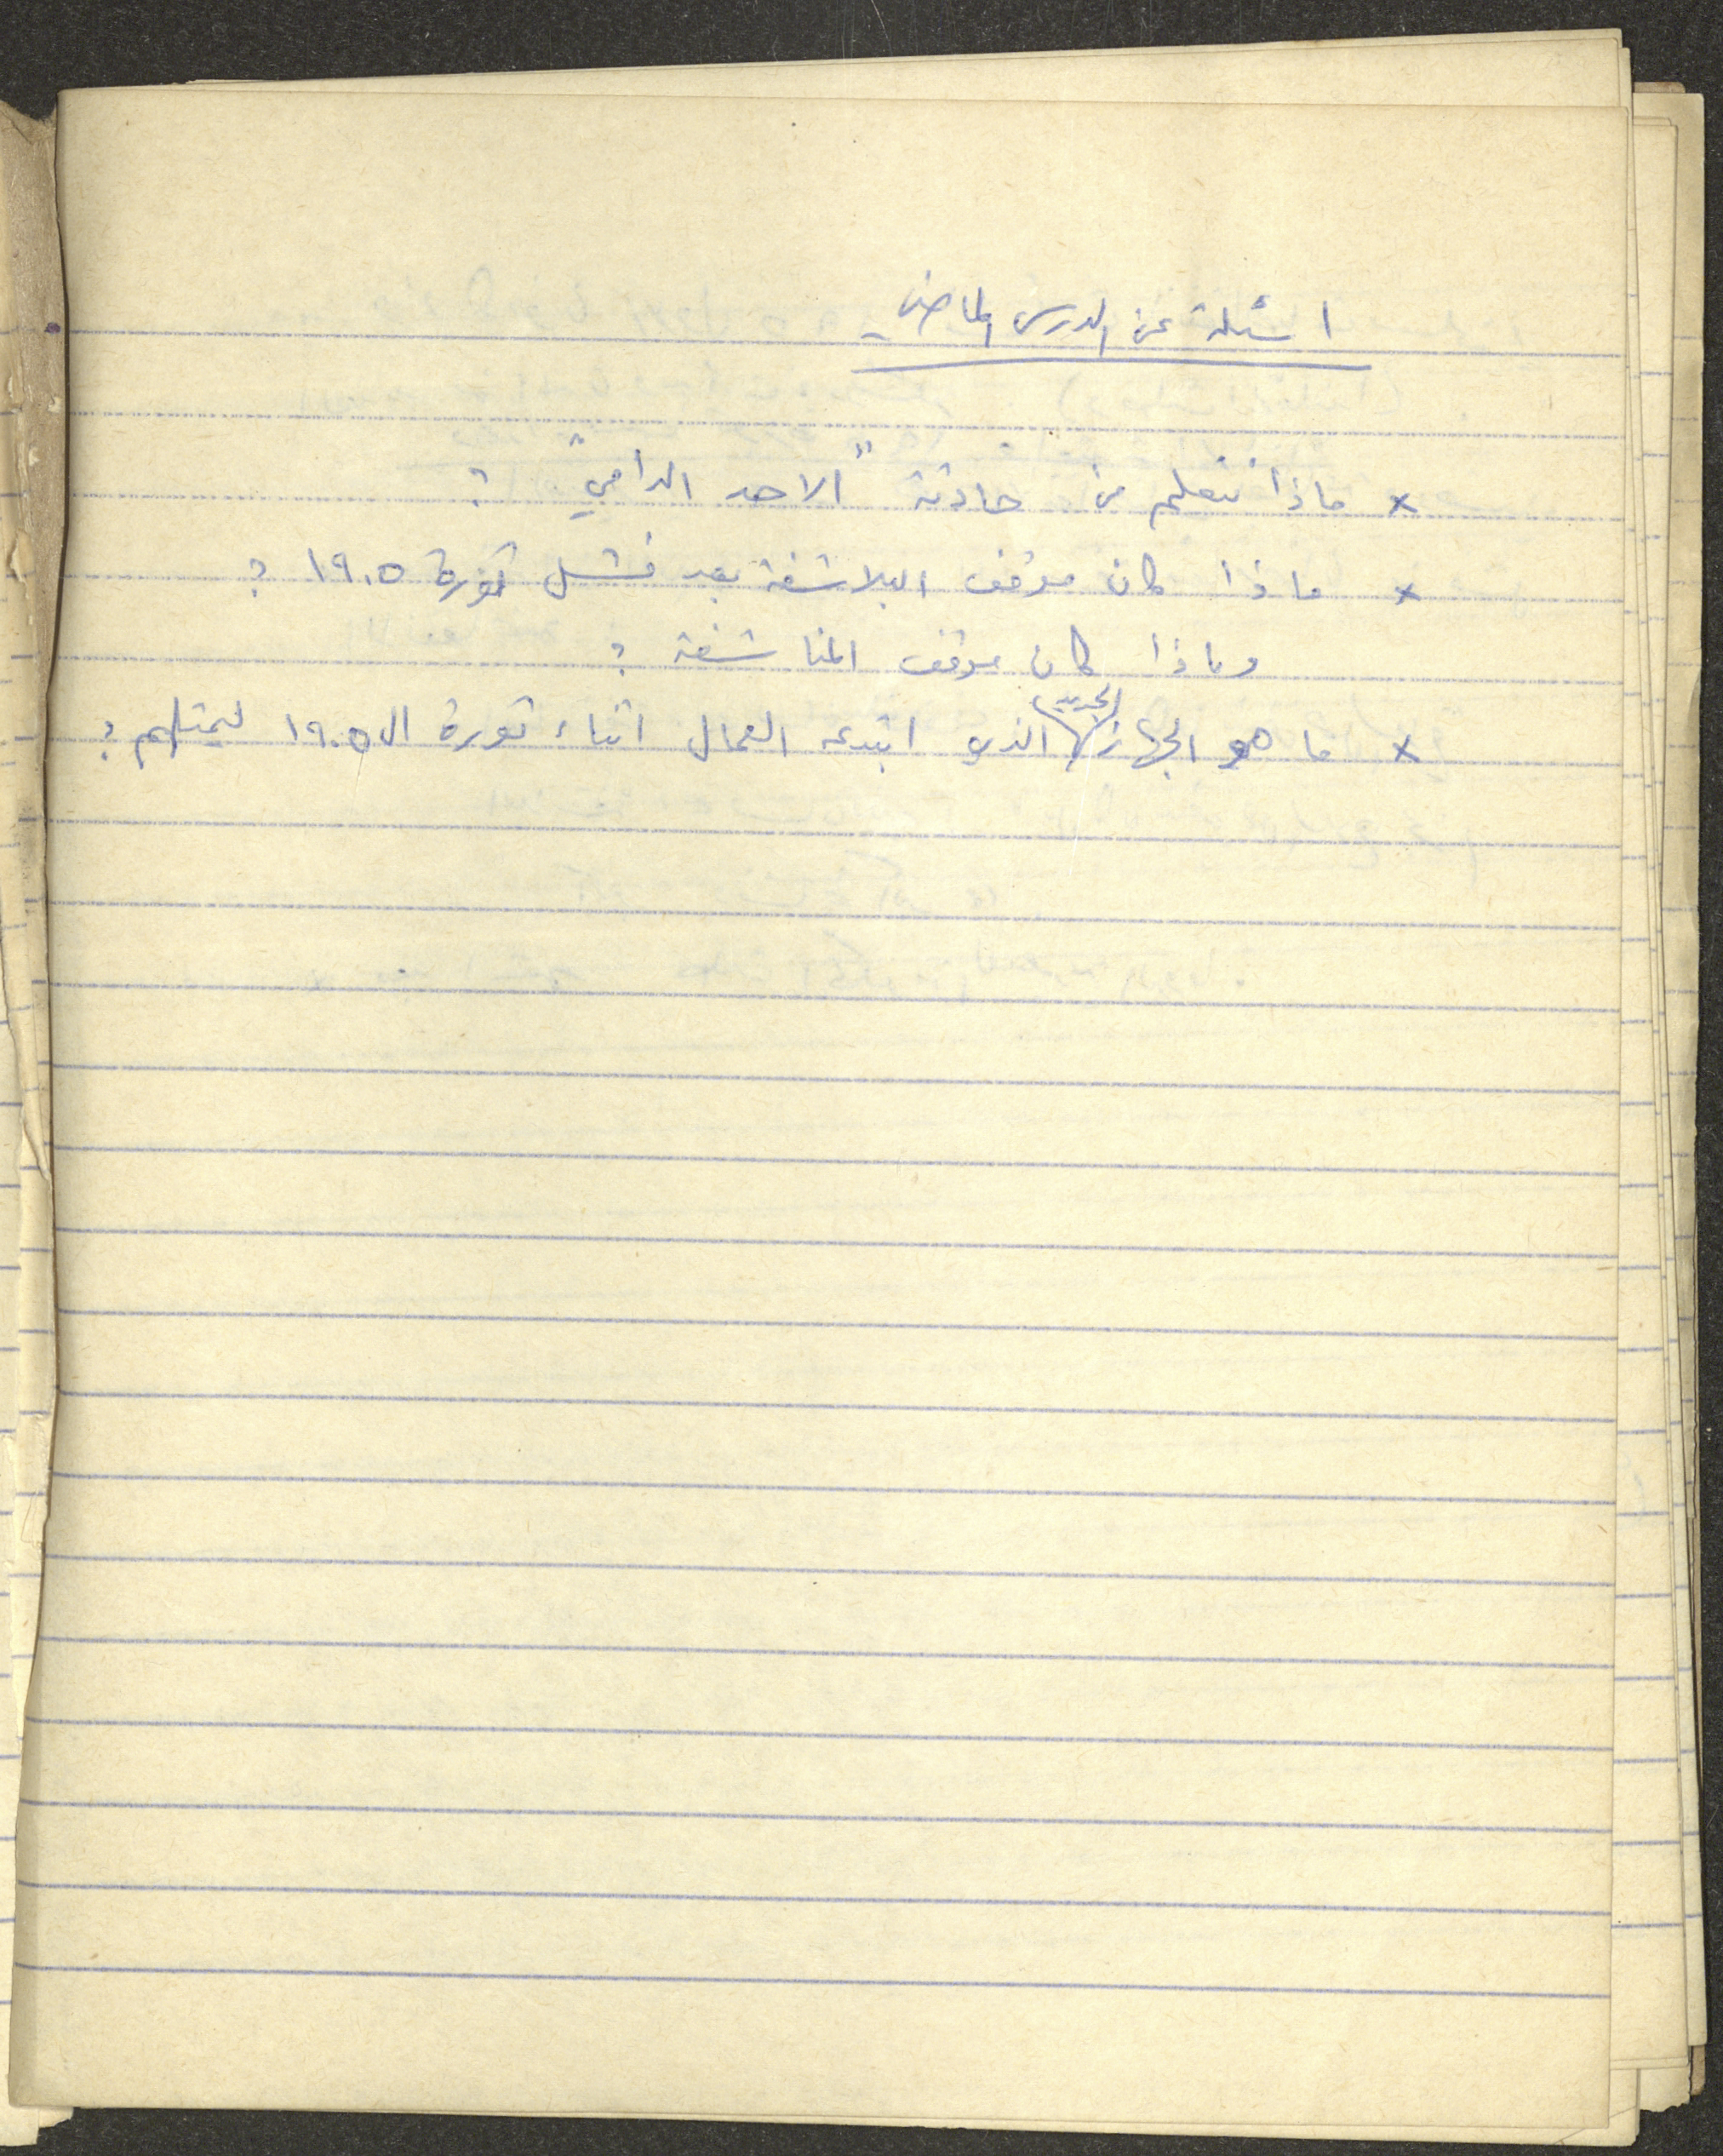 اسئلة عن الدرس الماضي
x ماذا نتعلم من حادثة "الاحد الدامي" ؟
x ماذا كان موقف البلاشفة بعد فشل ثورة ١٩٠٥ ؟
وماذا كان موقف المناشفة ؟
x ما هو الجهاز الجديد الذي ابتدعه العمال اثناء ثورة ال ١٩٠٥ ليمثلهم ؟